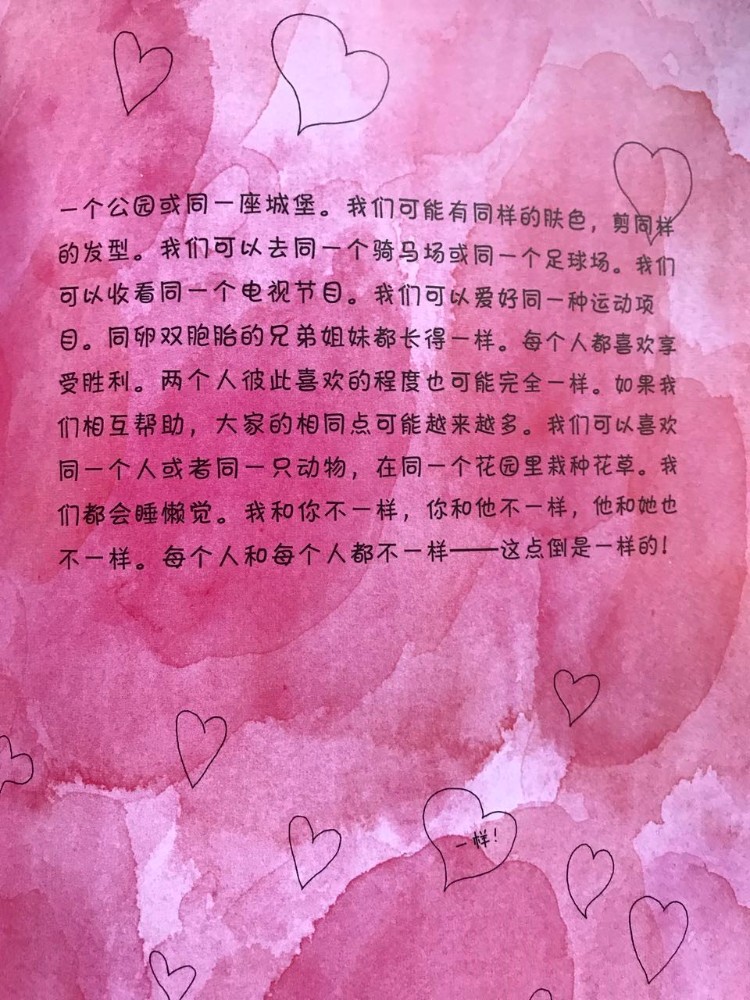 一个公园或同一座城堡。我们可能有同样的肤色，剪同样
的发型。我们可以去同一个骑马场或同一个足球场。我们
可以收看同一个电视节目。我们可以爱好同一种运动项
目。同卵双胞胎的兄弟姐妹都长得一样。每个人都喜欢享
受胜利。两个人彼此喜欢的程度也可能完全一样。如果我
们相互帮助，大家的相同点可能越来越多。我们可以喜欢
同一个人或者同一只动物，在同一个花园里栽种花草。我
们都会睡懒觉。我和你不一样，你和他不一样，他和她也
不一样。每个人和每个人都不一样——这点倒是一样的！
一样！